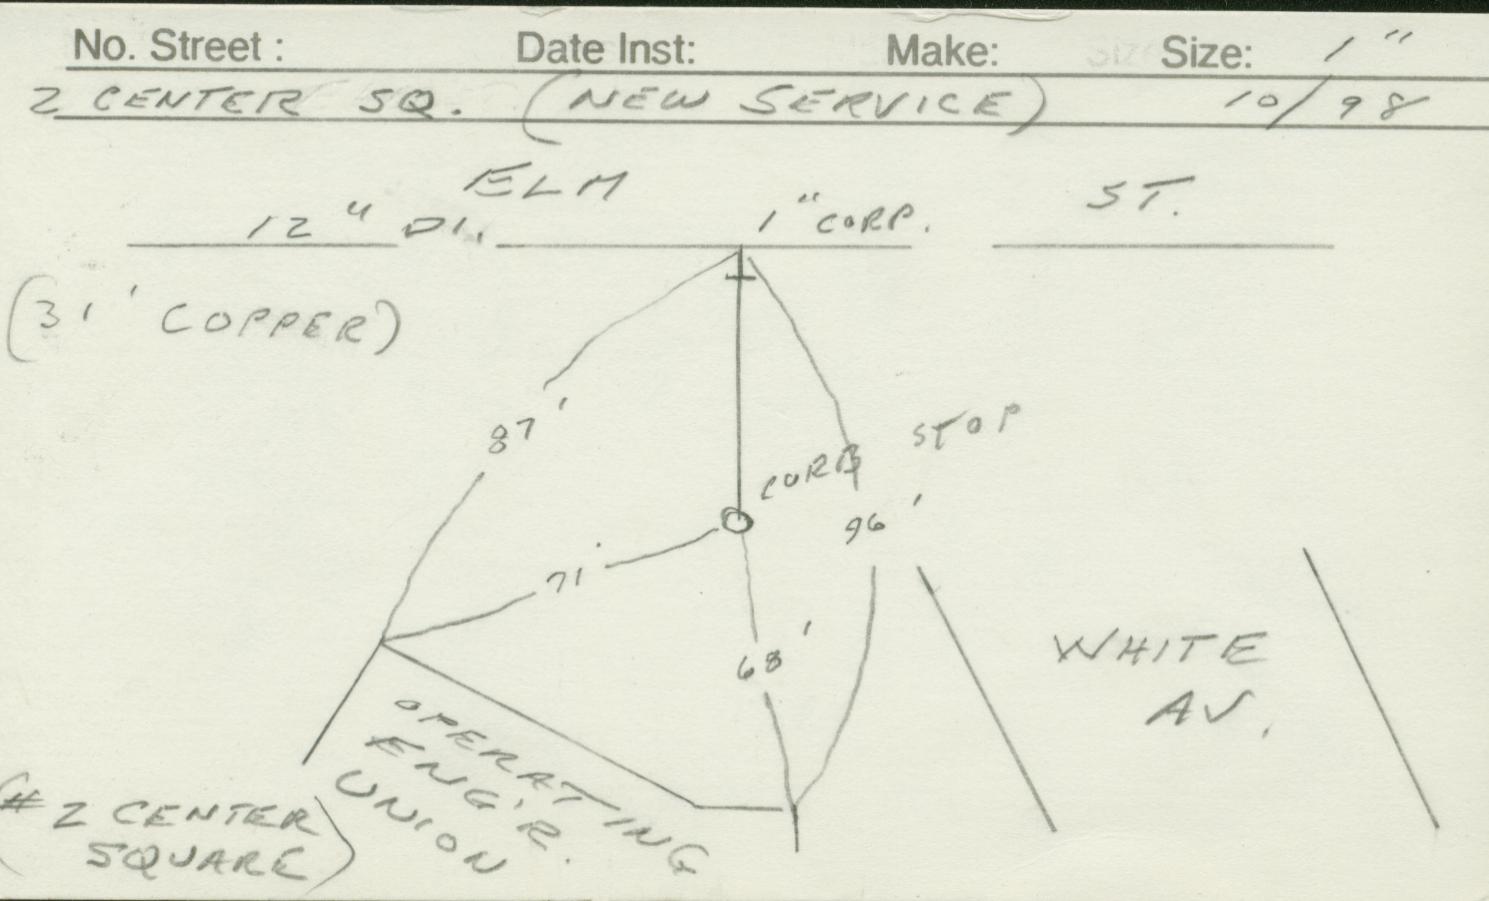 No. Street : Date Inst: Make: Size: 1"
2 CENTER SQ. (NEW SERVICE) 10/98
ELM ST.
12" D.I. 1" CORP.
(31' COPPER)
87'
CURB STOP
96'
71'
68'
WHITE
AV.
OPERATING
ENG'R.
UNION
(#2 CENTER
SQUARE)